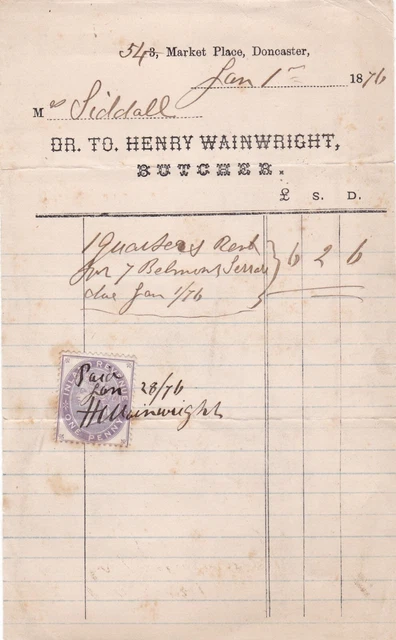 543, Market Place, Doncaster,
Jan 1st 1876
Mrs Siddall
DR. TO. HENRY WAINWRIGHT,
BUTCHER.
£ S. D.
1 Quarters Rent
for 7 Belmont Terrace 6 2 6
due Jan 1/76
INLAND REVENUE
ONE PENNY
Paid
Jan 28/76
H Wainwright